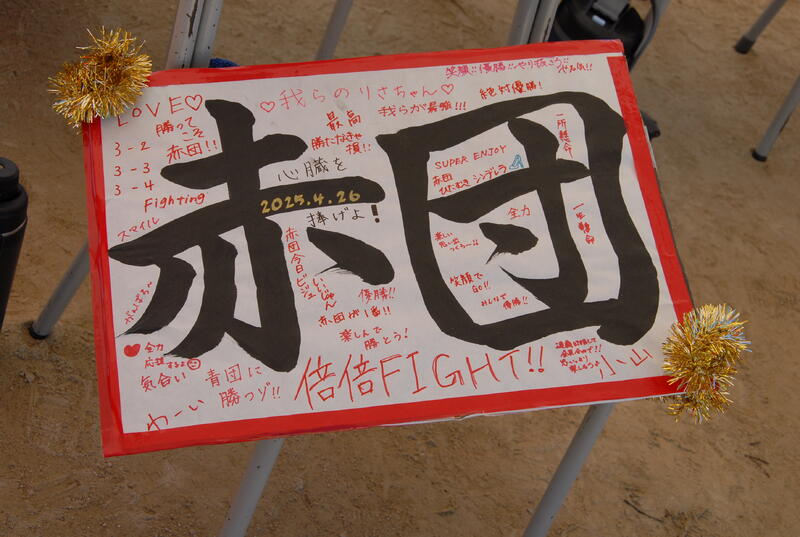 笑顔!!優勝!!
LOVE♡
♡我らのりさちゃん♡
絶対優勝!
勝って
こそ
赤団!!
最高
我らが最強!!!
勝たなきゃ
損!!
3-2
3-3
3-4
Fighting
スマイル
赤団
心臓を
2025.4.26
捧げよ!
SUPER ENJOY
赤団
ひたむきシンデレラ
一所懸命
一生懸命
全力
楽しい
思い出
つくろー!!
赤団今日ビジュ
いいじゃん
笑顔で
GO!!
みんなで
優勝!!
優勝!!
赤団が1番!!
楽しんで
勝とう!
がんばろう
♥全力
応援するよ
気合い
わーい
青団に
勝つゾ!!
倍倍FIGHT!!
小山